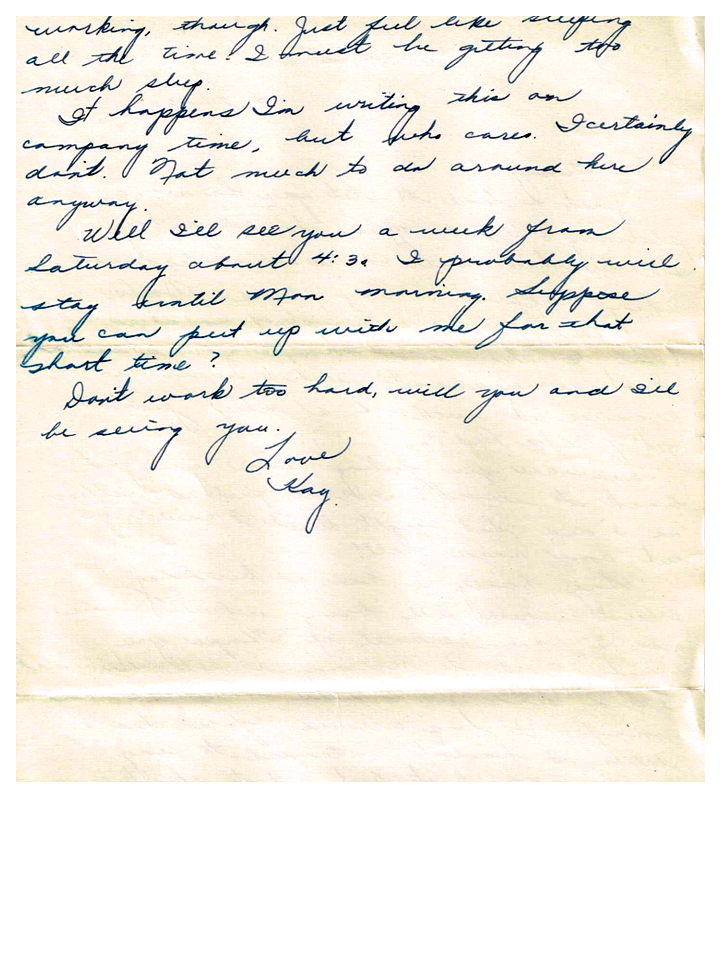 working, though. Just feel like sleeping
all the time. I must be getting too
much sleep.
It happens I'm writing this on
company time, but who cares. I certainly
don't. Not much to do around here
anyway.
Well I'll see you a week from
Saturday about 4:30 I probably will
stay until Mon morning. Suppose
you can put up with me for that
short time?
Don't work too hard, will you and I'll
be seeing you.
Love
Kay.